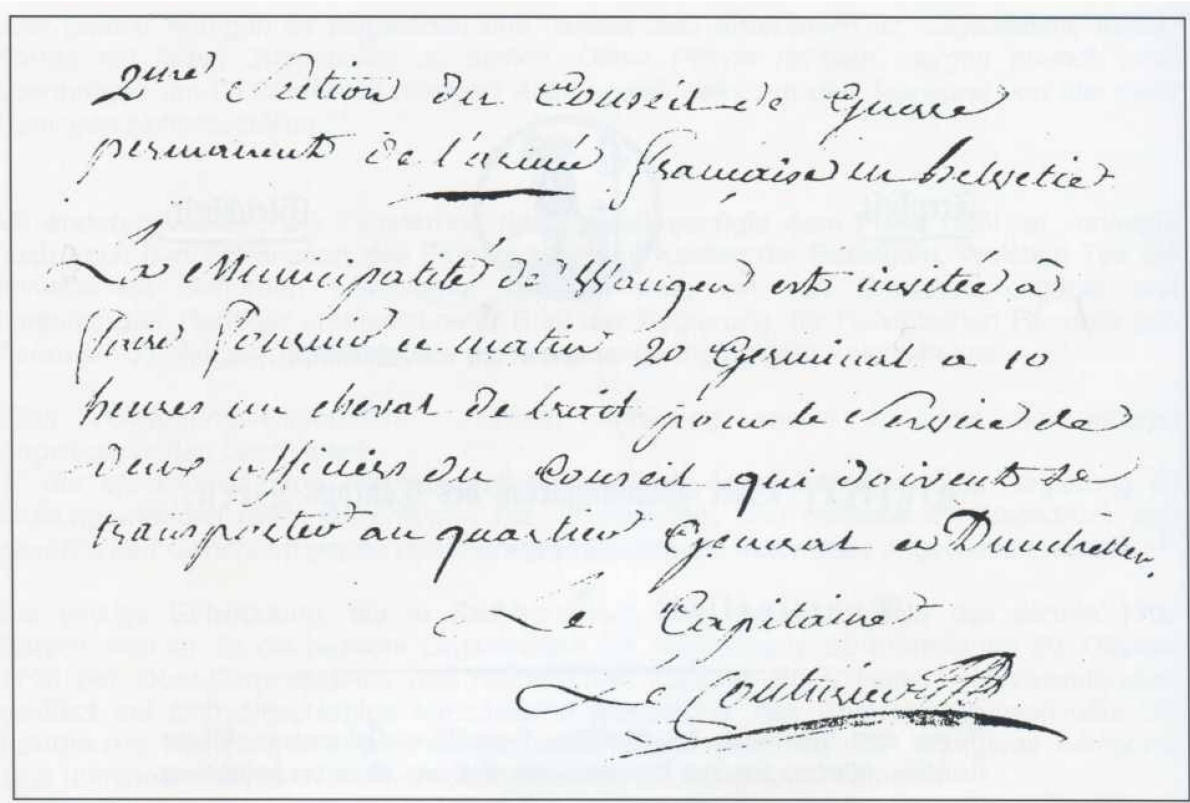 2e Section du Conseil de Guerre
permanent de l'armée française en helvetie
La Municipalité de Wangen est invitée à
faire fournir ce matin 20 Germinal à 10
heures un cheval de trait pour le Service de
deux officiers du Conseil qui doivent se
transporter au quartier General
Le Capitaine
Le